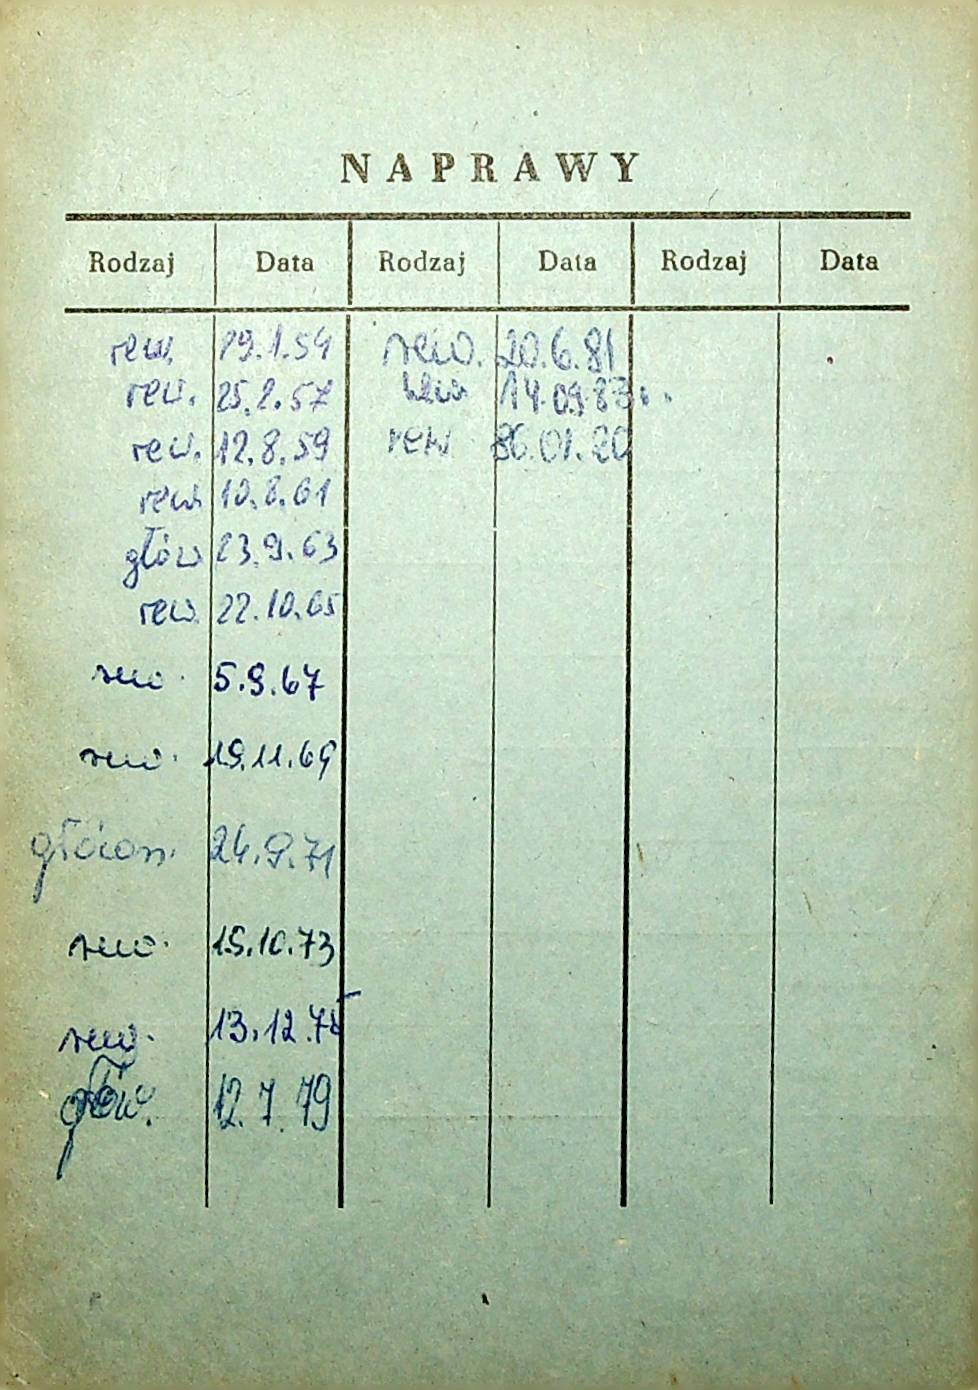 NAPRAWY
Rodzaj Data Rodzaj Data Rodzaj Data
rew. 29.1.54 rew. 20.6.81
rew. 25.2.57 rew 14.09.83r.
rew. 12.8.59 rew 86.01.20
rew 10.8.61
głów 23.9.63
rew. 22.10.65
rew. 5.9.67
rew. 19.11.69
główn. 24.9.71
rew. 15.10.73
rew. 13.12.75
głów. 12.7.79